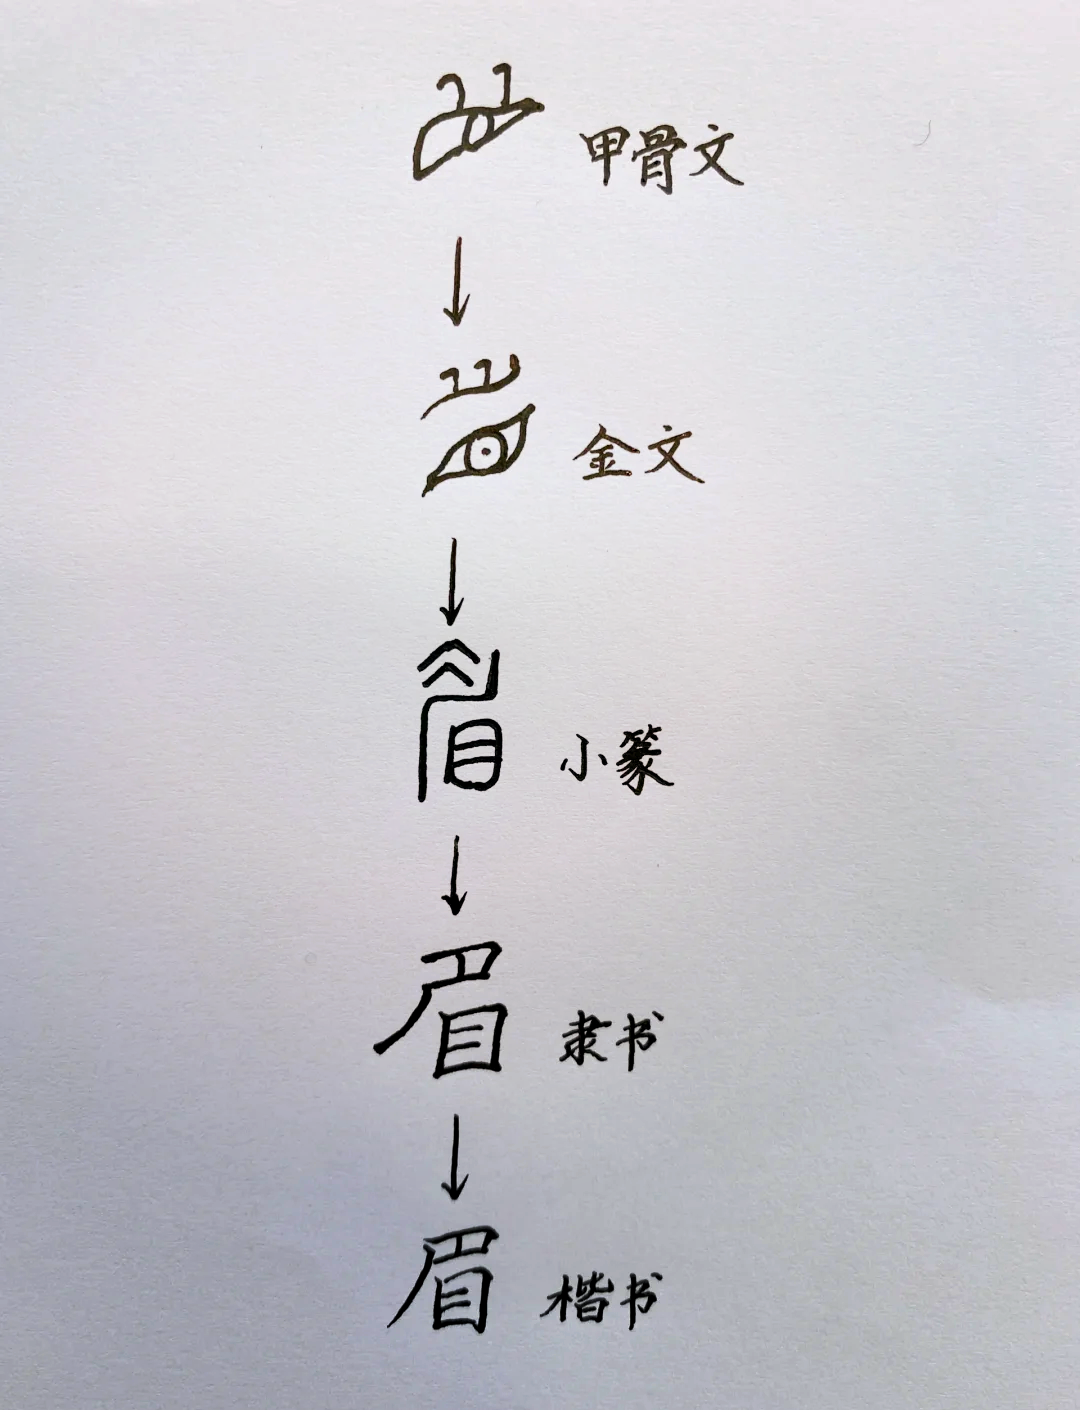 甲骨文
金文
小篆
眉 隶书
眉 楷书